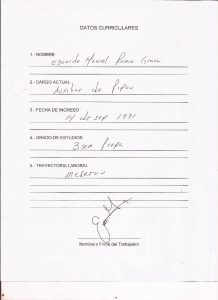 DATOS CURRICULARES
1.- NOMBRE
Eduardo Manuel
2.- CARGO ACTUAL
Auxiliar de Pipas
3.- FECHA DE INGRESO
de sep 1991
4.- GRADO DE ESTUDIOS
3 sem Prepa
5.- TRAYECTORIA LABORAL
meseros
Nombre y Firma del Trabajador